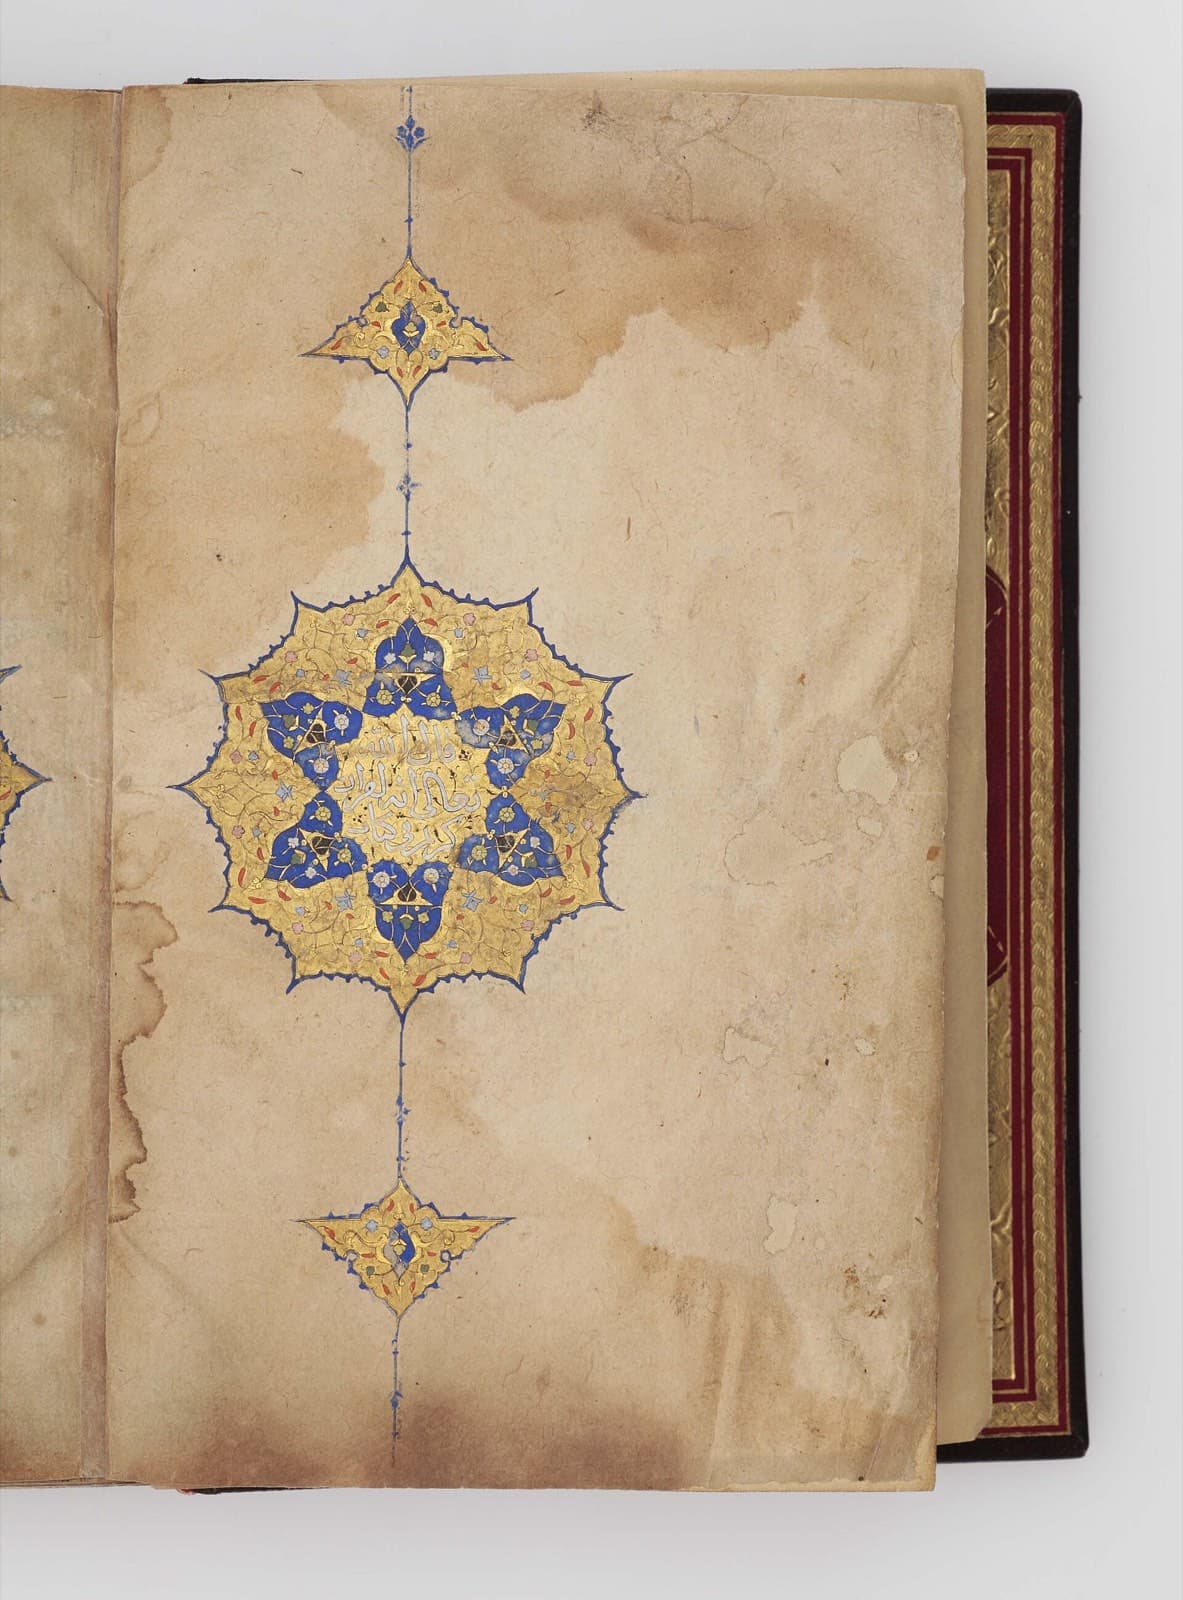 قال الله
تعالى انه لقران
كريم فى كتاب